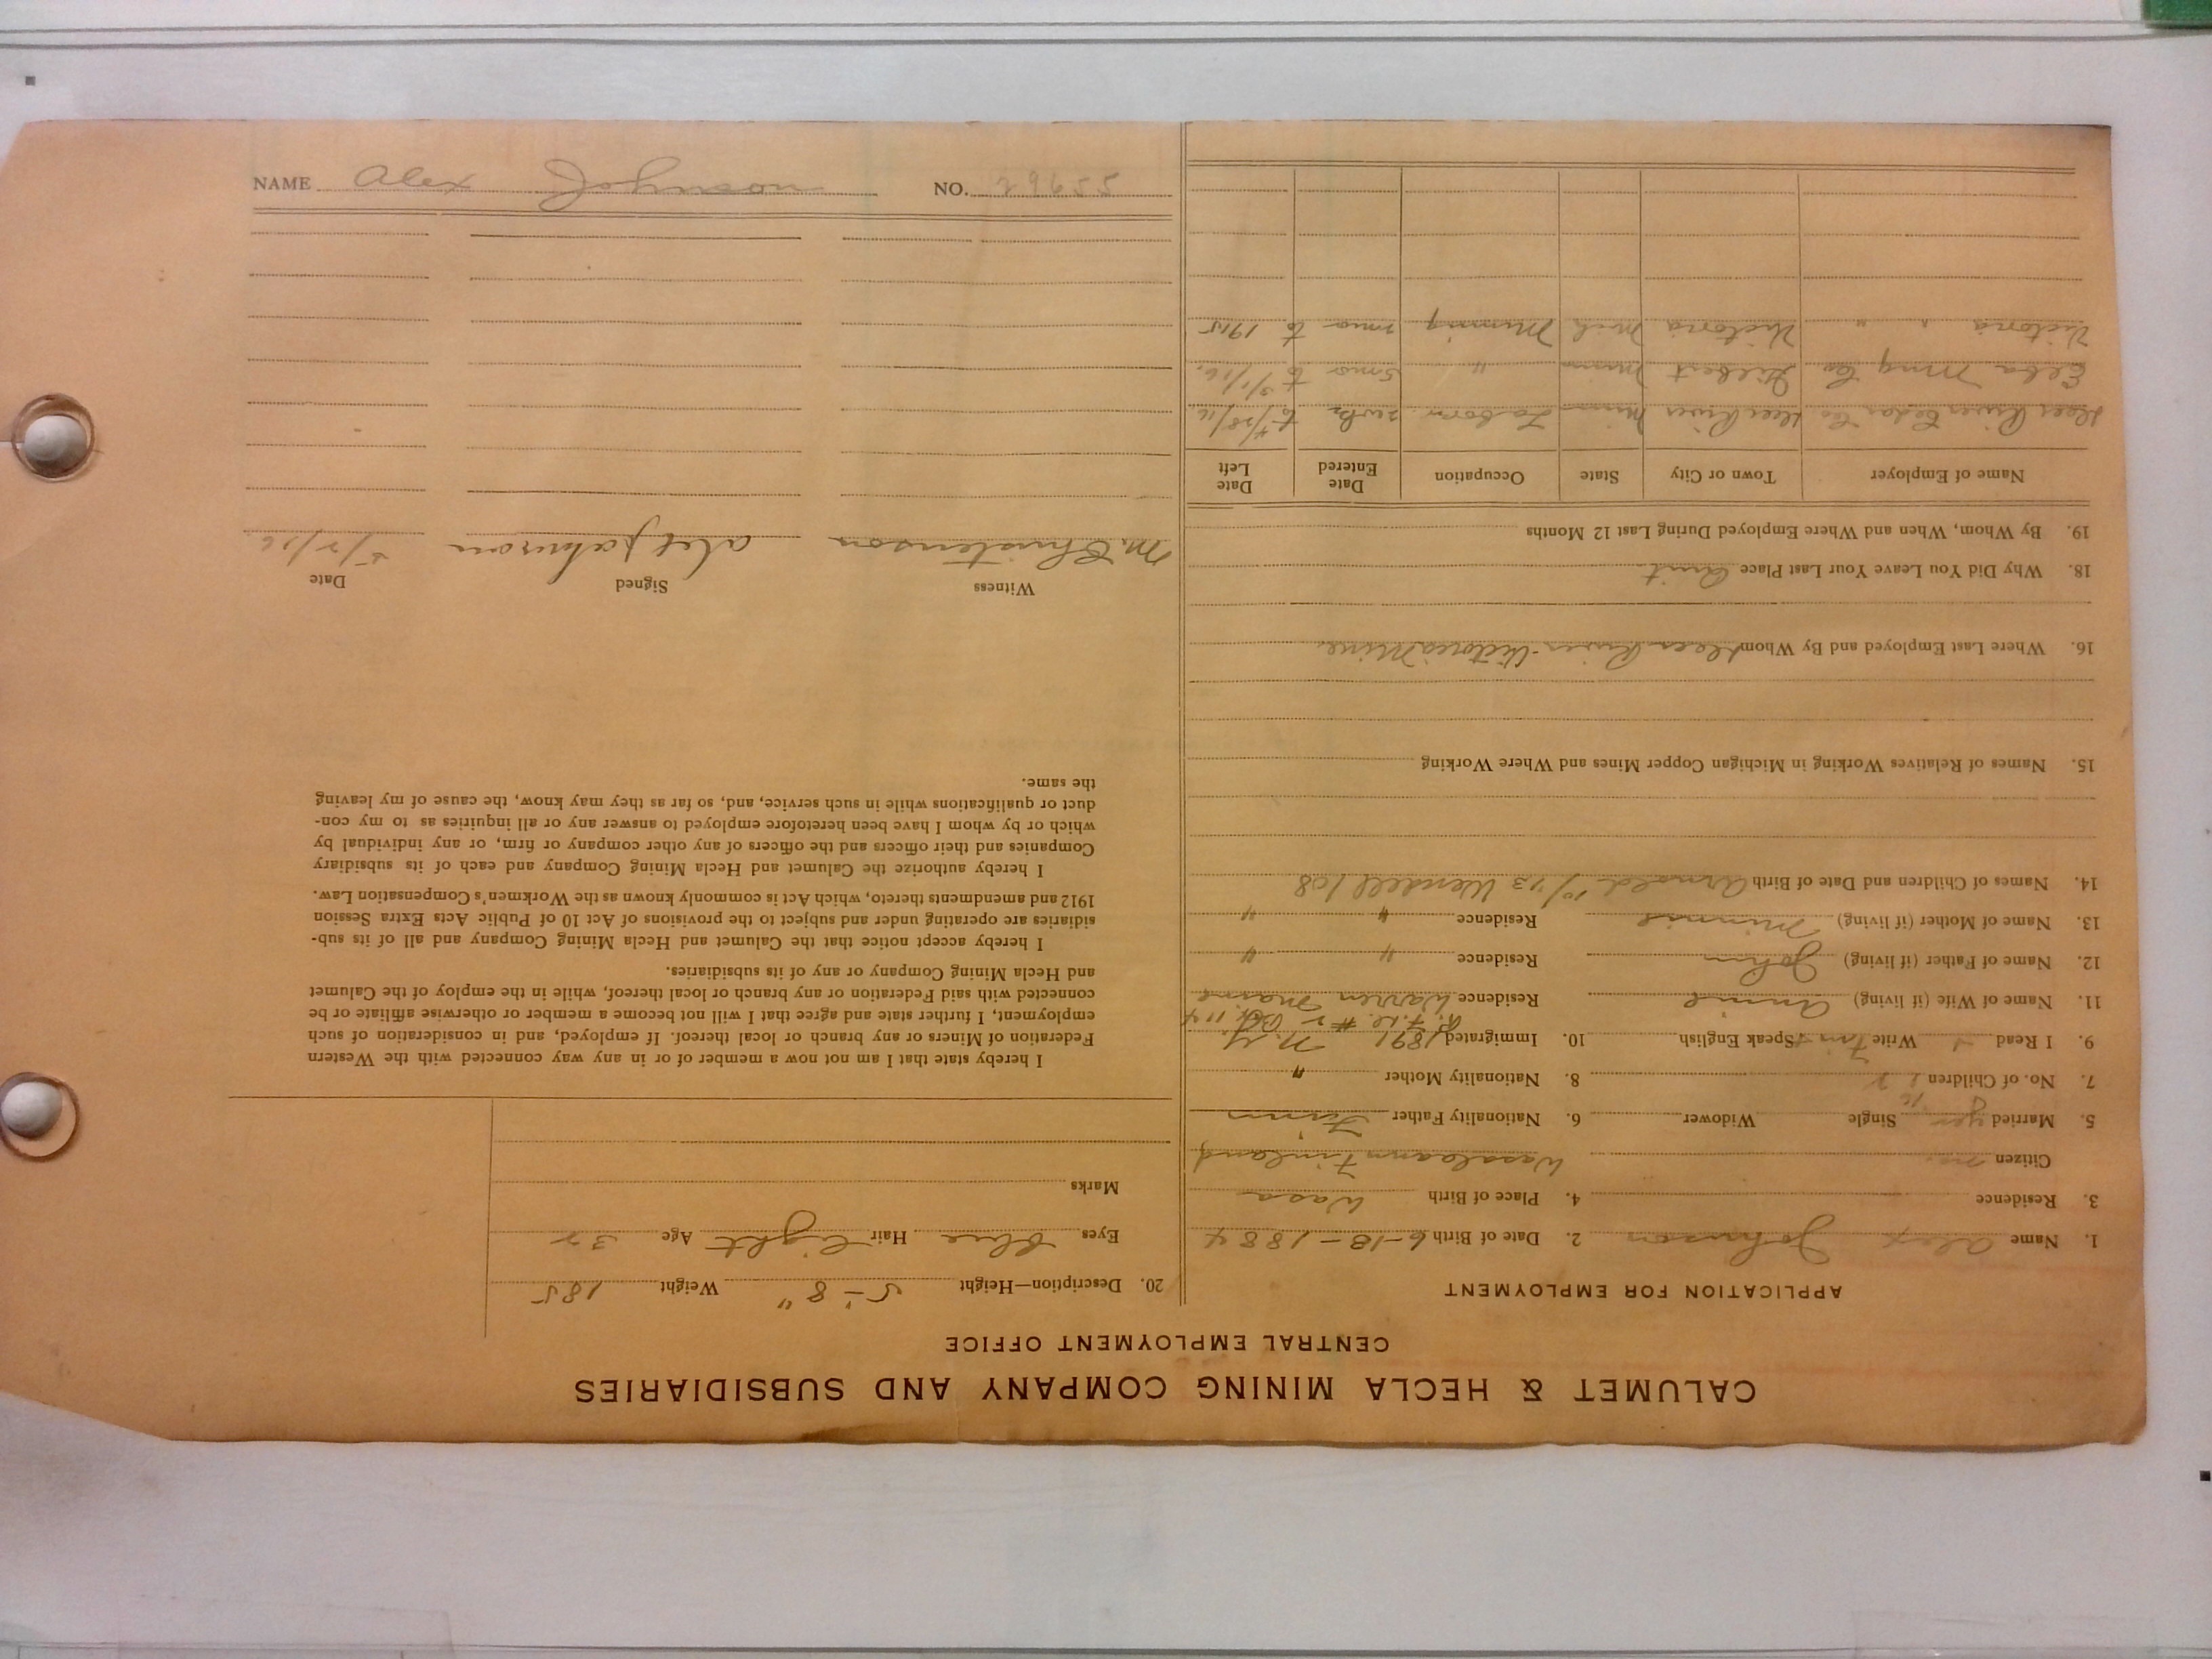 CALUMET & HECLA MINING COMPANY AND SUBSIDIARIES
CENTRAL EMPLOYMENT OFFICE
APPLICATION FOR EMPLOYMENT
1. Name Alex Johnson 2. Date of Birth 6-18-1884
3. Residence 4. Place of Birth Wasa
Citizen no Wasalaann Finland
5. Married yes Single Widower 6. Nationality Father Finn
7. No. of Children 2 8. Nationality Mother "
9. I Read Write Finn Speak English 10. Immigrated 1891 N.Y.
R.F.D. #2 Box 114
11. Name of Wife (if living) Annie Residence Warren Maine
12. Name of Father (if living) John Residence " "
13. Name of Mother (if living) Minnie Residence " "
14. Names of Children and Date of Birth Arnold 10/13 Wendell /08
15. Names of Relatives Working in Michigan Copper Mines and Where Working
16. Where Last Employed and By Whom Deer River - Victoria Mine.
18. Why Did You Leave Your Last Place Quit
19. By Whom, When and Where Employed During Last 12 Months
Name of Employer Town or City State Occupation Date Entered Date Left
Deer River Cedar Co Deer River Minn Labor 2 wks to 4/28/16
Elba Mng Co Gilbert Minn " 5 mo to 3/1/16.
Victoria " " Victoria Mich Mining to 1915
20. Description—Height 5-8" Weight 185
Eyes blue Hair light Age 32
Marks
I hereby state that I am not now a member of or in any way connected with the Western
Federation of Miners or any branch or local thereof. If employed, and in consideration of such
employment, I further state and agree that I will not become a member or otherwise affiliate or be
connected with said Federation or any branch or local thereof, while in the employ of the Calumet
and Hecla Mining Company or any of its subsidiaries.
I hereby accept notice that the Calumet and Hecla Mining Company and all of its sub-
sidiaries are operating under and subject to the provisions of Act 10 of Public Acts Extra Session
1912 and amendments thereto, which Act is commonly known as the Workmen's Compensation Law.
I hereby authorize the Calumet and Hecla Mining Company and each of its subsidiary
Companies and their officers and the officers of any other company or firm, or any individual by
which or by whom I have been heretofore employed to answer any or all inquiries as to my con-
duct or qualifications while in such service, and, so far as they may know, the cause of my leaving
the same.
Witness Signed Date
M. Christenson Alex Johnson 5/2/16.
NAME Alex Johnson NO. 29655